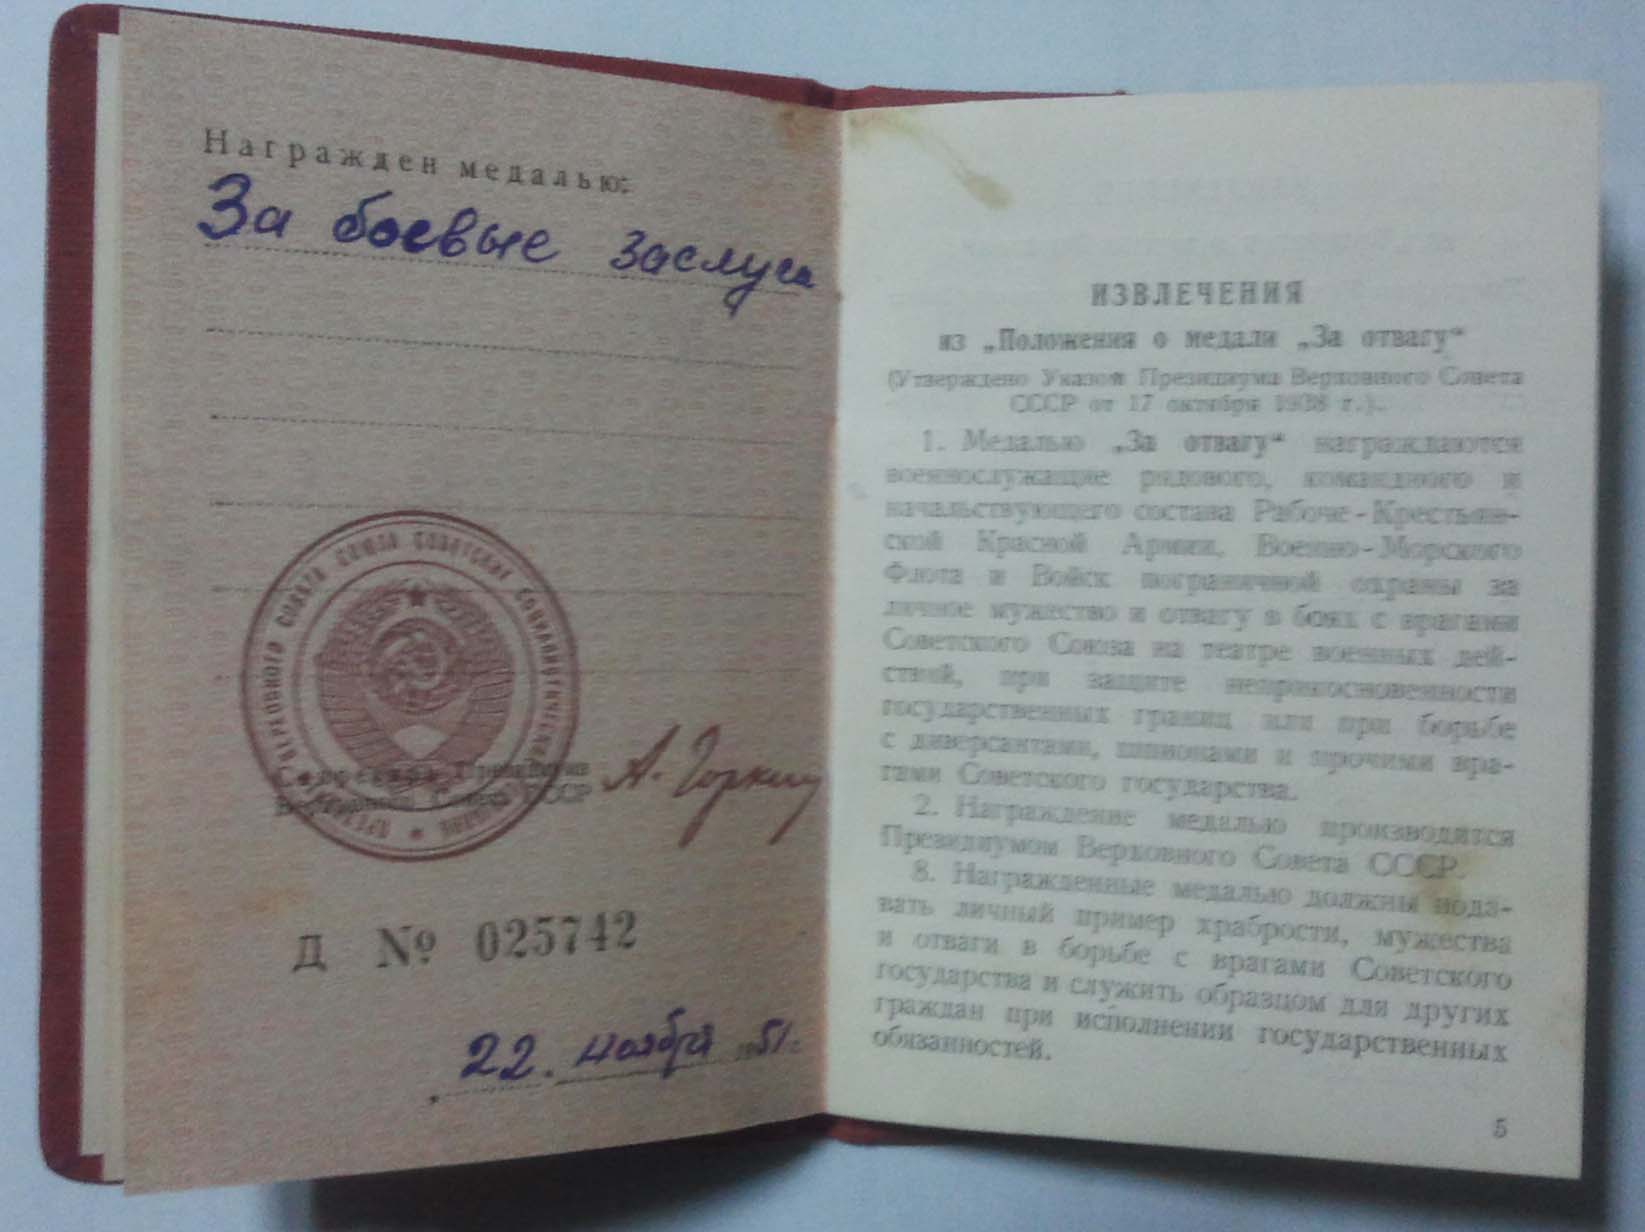 Награжден медалью:
За боевые заслуги
Секретарь Президиума
Верховного Совета СССР
А. Горкин
Д № 025742
22. ноября 1951 г.
ИЗВЛЕЧЕНИЯ
из „Положения о медали „За отвагу“
(Утверждено Указом Президиума Верховного Совета
СССР от 17 октября 1938 г.).
1. Медалью „За отвагу“ награждаются
военнослужащие рядового, командного и
начальствующего состава Рабоче-Крестьян-
ской Красной Армии, Военно-Морского
Флота и Войск пограничной охраны за
личное мужество и отвагу в боях с врагами
Советского Союза на театре военных дей-
ствий, при защите неприкосновенности
государственных границ или при борьбе
с диверсантами, шпионами и прочими вра-
гами Советского государства.
2. Награждение медалью производится
Президиумом Верховного Совета СССР.
8. Награжденные медалью должны пода-
вать личный пример храбрости, мужества
и отваги в борьбе с врагами Советского
государства и служить образцом для других
граждан при исполнении государственных
обязанностей.
5